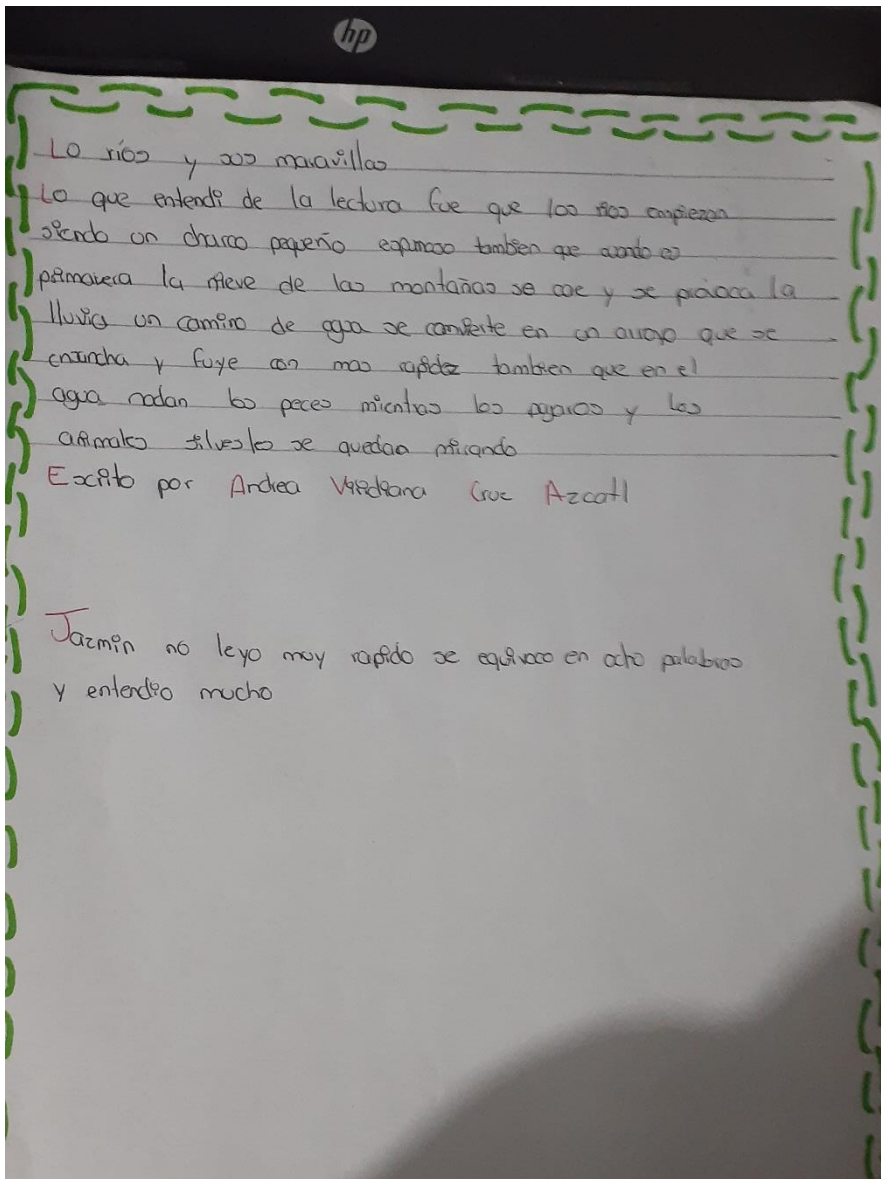 hp
Lo ríos y sus maravillas
Lo que entendi de la lectura fue que los rios empiezan
siendo un charco pequeño espumoso tambien que cuando es
primavera la nieve de las montañas se cae y se provoca la
lluvia un camino de agua se convierte en un arroyo que se
ensancha y fuye con mas rapidez tambien que en el
agua nadan los peces mientras los pajaros y los
animales silvestes se quedan mirando
Escrito por Andrea Cruz Azcatl
Jazmin no leyo muy rapido se equivoco en ocho palabras
y entendio mucho